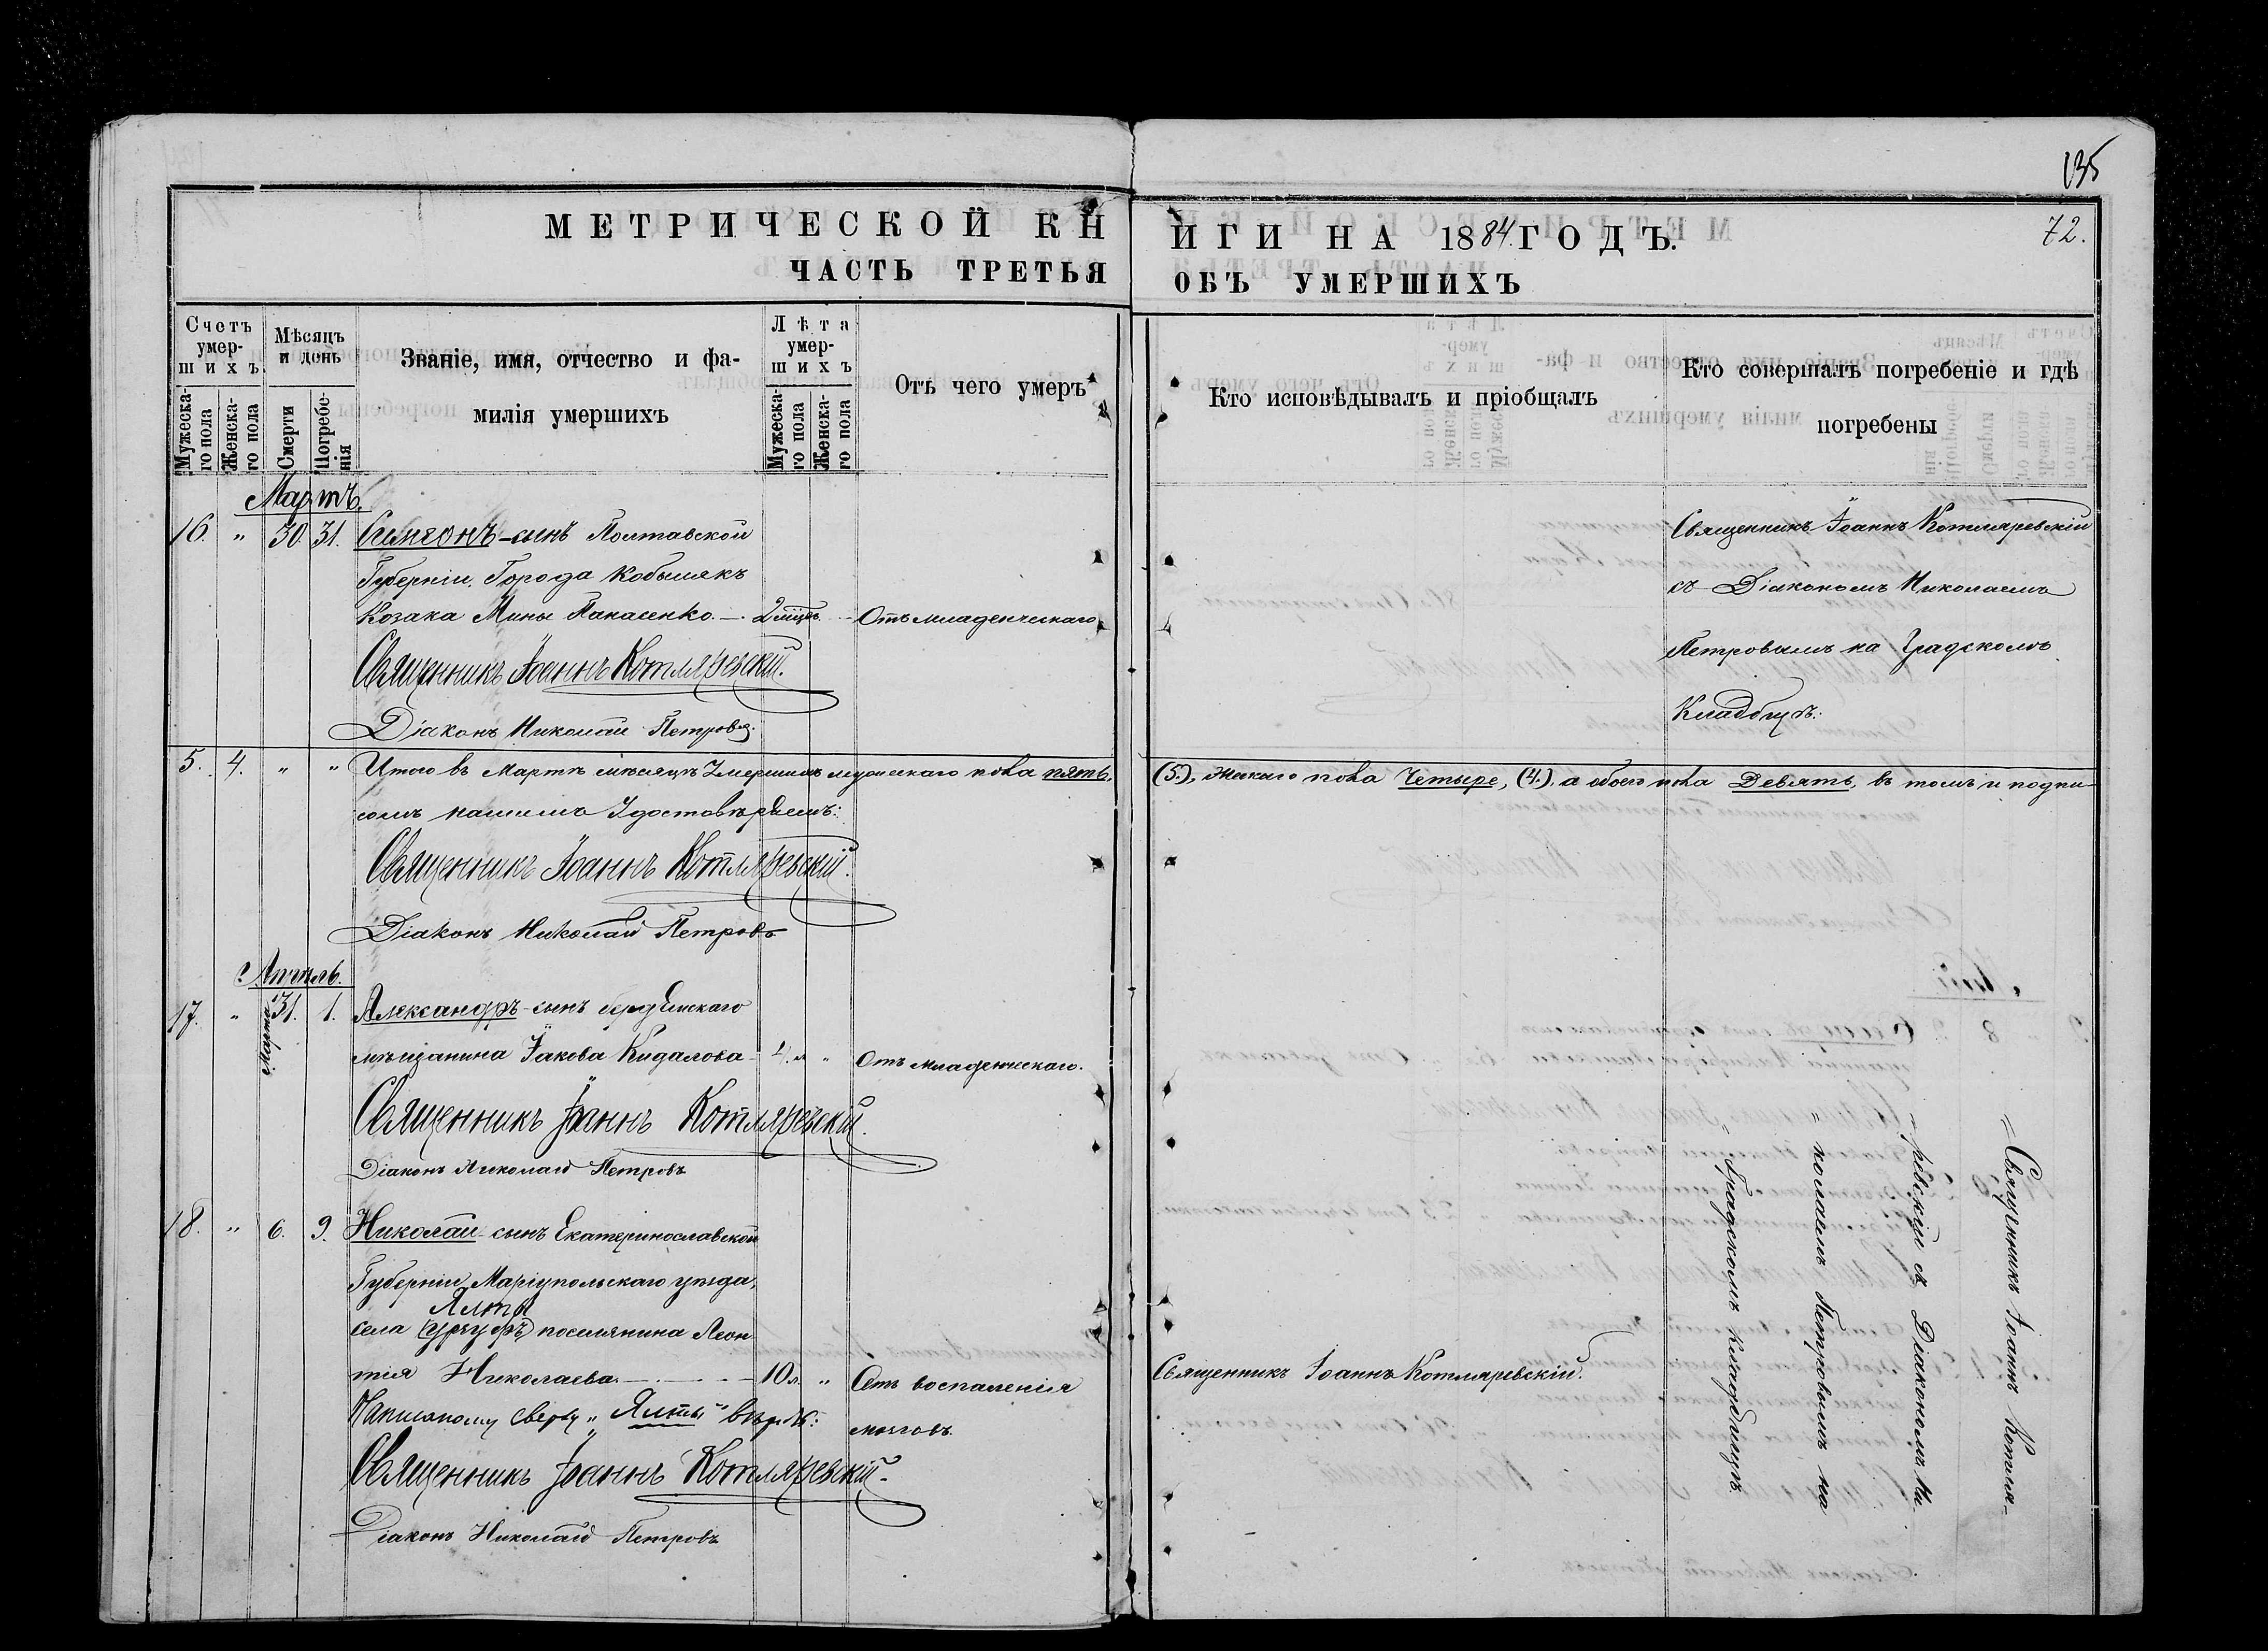 135
МЕТРИЧЕСКОЙ КНИГИ НА 1884 ГОДЪ.
72.
ЧАСТЬ ТРЕТЬЯ ОБЪ УМЕРШИХЪ
Счетъ умер-шихъ
Мужеска-го пола
Женска-го пола
Мѣсяцъ и день
Смерти
Погребе-нія
Званіе, имя, отчество и фа-
милія умершихъ
Лѣта умер-шихъ
Мужеска-го пола
Женска-го пола
Отъ чего умеръ
Кто исповѣдывалъ и пріобщалъ
Кто совершалъ погребеніе и гдѣ
погребены
Мартъ.
16. " 30. 31. Симеонъ - сынъ Полтавской
Губерніи, Города Кобылякъ
Козака Мины Панасенко. — 2 мѣць. Отъ младенческаго
Священникъ Іоаннъ Котляревскій.
Діаконъ Николай Петровъ.
Священникъ Іоаннъ Котляревскій
съ Діакономъ Николаемъ
Петровымъ на Градскомъ
Кладбищѣ:
5. 4. " " Итого въ Мартѣ мѣсяцѣ Умершихъ мужескаго пола пять, (5.), женскаго пола Четыре, (4.), а обоего пола Девять, въ томъ и подпи-
сомъ нашимъ Удостовѣряемъ:
Священникъ Іоаннъ Котляревскій.
Діаконъ Николай Петровъ
Апрѣль.
17. " Марта 31. 1. Александръ - сынъ бердянскаго
мѣщанина Іакова Кидалова - "
Отъ младенческаго.
Священникъ Іоаннъ Котляревскій.
Діаконъ Николай Петровъ
18. " 6. 9. Николай - сынъ Екатеринославской
Губерніи, Маріупольскаго уѣзда,
Ялты
села (Урзуфъ) поселянина Леон
тія Николаева. — 10 л. " Отъ воспаленія
мозговъ.
Написаному сверху "Ялты" вѣрить:
Священникъ Іоаннъ Котляревскій.
Діаконъ Николай Петровъ
Священникъ Іоаннъ Котляревскій.
Священникъ Іоаннъ Котля-
ревскій съ Діакономъ Ни-
колаемъ Петровымъ на
Градскомъ кладбищѣ.